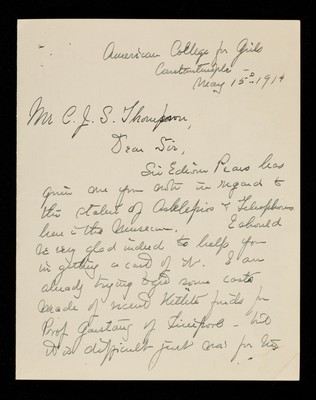 American College for Girls
Constantinople -
May 15th 1914
Mr C. J. S. Thompson,
Dear Sir,
Sir Edwin Pears has
given me your note in regard to
the statue of Asklepios & Telesphoros
here in the Museum. I should
be very glad indeed to help you
in getting a cast of it. I am
already trying to get some casts
made of recent Hittite finds for
Prof Garstang of Liverpool - but
it is difficult just now for the